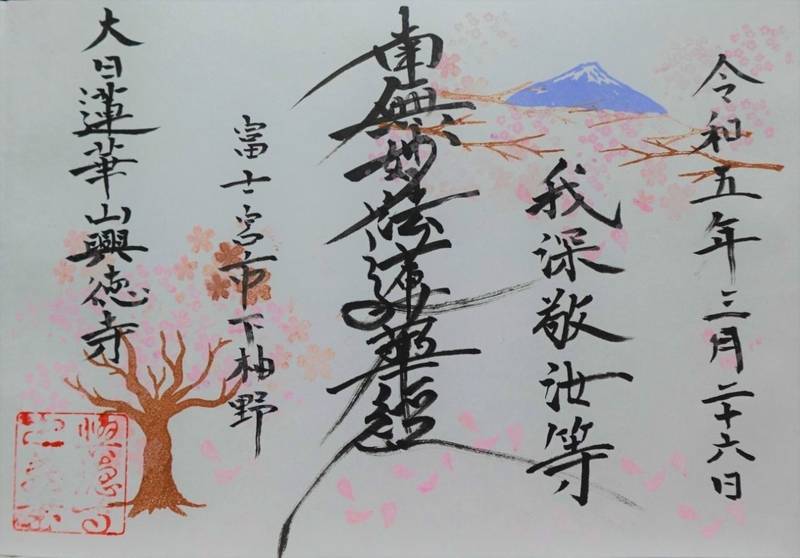 令和五年三月二十六日
我深敬汝等
南無妙法蓮華経
富士宮市下柚野
大日蓮華山興徳寺